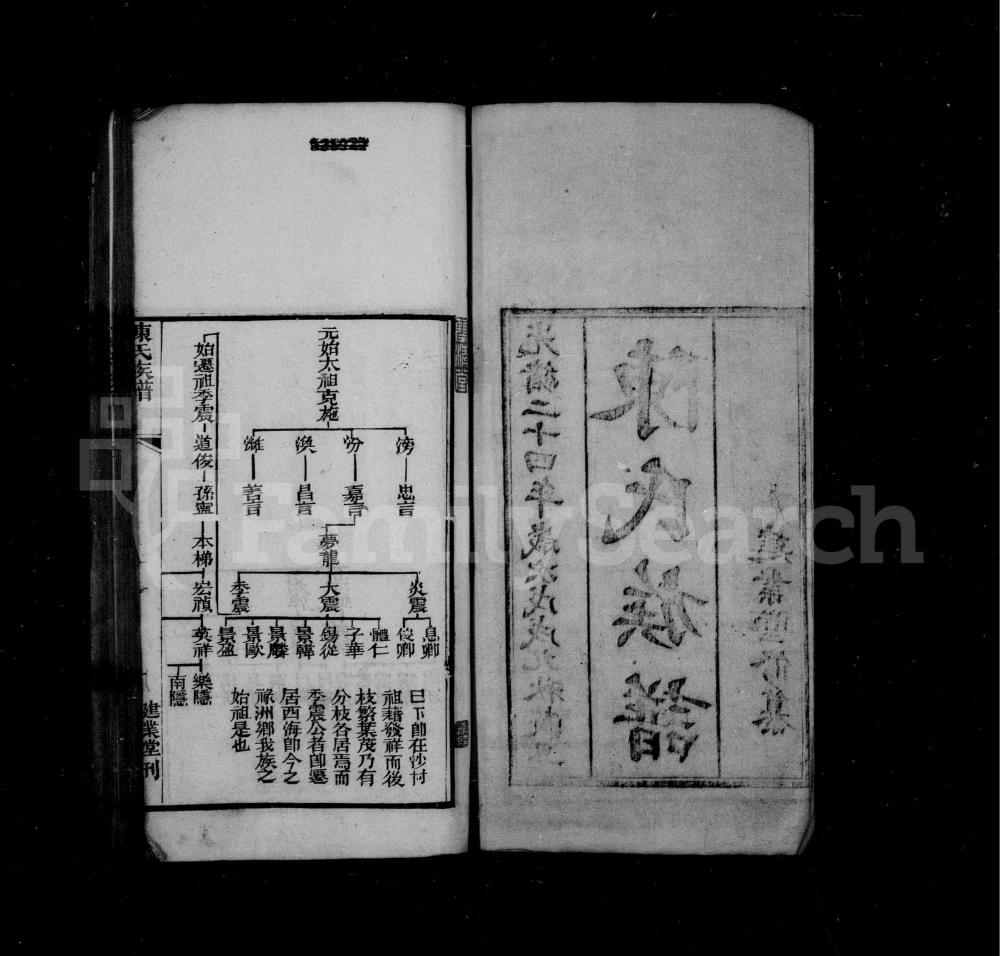 陳氏族譜
光緒二十四年歲次戊戌
建業堂修集
元始太祖克施
滂 忠言
汾 嘉言
渙 昌言
濰 善言
夢龍
炎震 大震 季震
息卿 俊卿 體仁 子華 錫從 景韓 景麟 景歐 景盈
始遷祖季震 道俊 孫寧 本梯 宏禎 英祥 樂隱 南隱
已下卽在沙村
祖藉發祥而後
枝繁葉茂乃有
分枝各居焉而
季震公者卽遷
居西海卽今之
祿洲鄉我族之
始祖是也
陳氏族譜
建業堂刊
FamilySearch